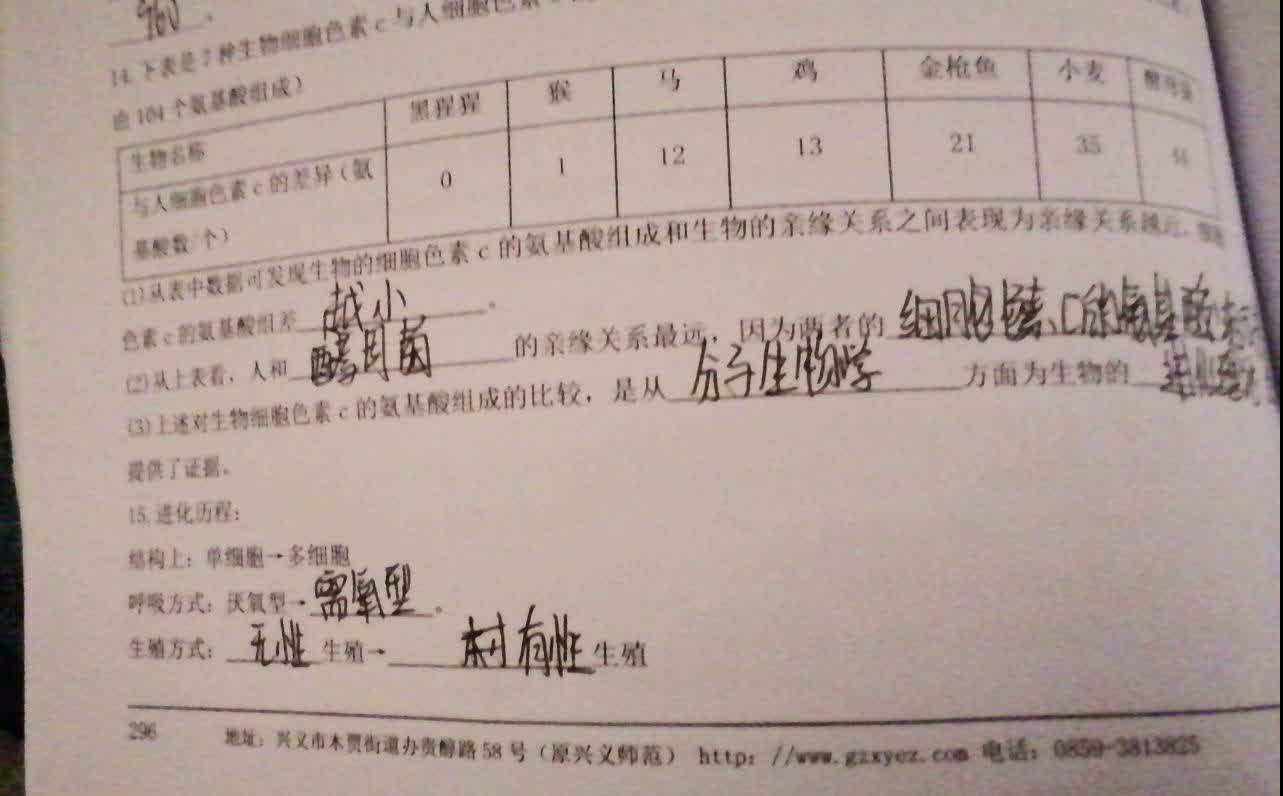 960.
14.下表是7种生物细胞色素c与人细胞色素c
由104个氨基酸组成)
生物名称 黑猩猩 猴 马 鸡 金枪鱼 小麦 酵母菌
与人细胞色素c的差异(氨基酸数/个) 0 1 12 13 21 35 44
(1)从表中数据可发现生物的细胞色素c的氨基酸组成和生物的亲缘关系之间表现为亲缘关系越近,细胞
色素c的氨基酸组差越小。
(2)从上表看,人和酵母菌的亲缘关系最远,因为两者的细胞色素c的氨基酸
(3)上述对生物细胞色素c的氨基酸组成的比较,是从分子生物学方面为生物的
提供了证据。
15.进化历程:
结构上:单细胞→多细胞
呼吸方式:厌氧型→需氧型。
生殖方式:无性生殖→有性生殖
296 地址:兴义市木贾街道办贵醇路58号(原兴义师范) http://www.gzxyez.com 电话:0859-3813825